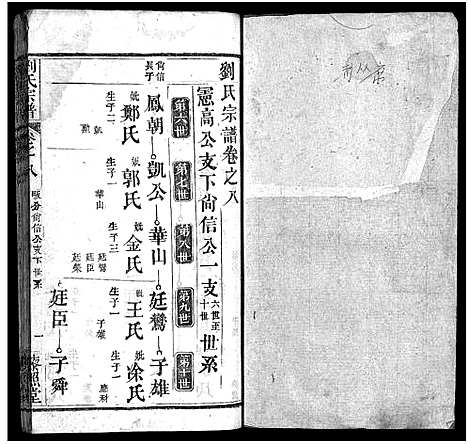 劉氏宗譜卷之八
憲高公支下尚信公一支六世至十世世系
第六世
第七世
第八世
第九世
第十世
尚信長子
鳳朝 凱公 華山 廷鸞 子雄
妣鄭氏 妣郭氏 妣金氏 妣王氏 涂氏
生子二 生子一 生子三 生子一 生子一
凱 華山 廷鸞 廷臣 廷榮 子雄
廷臣 子舜
劉氏宗譜
卷之八
尚信公下世系
一